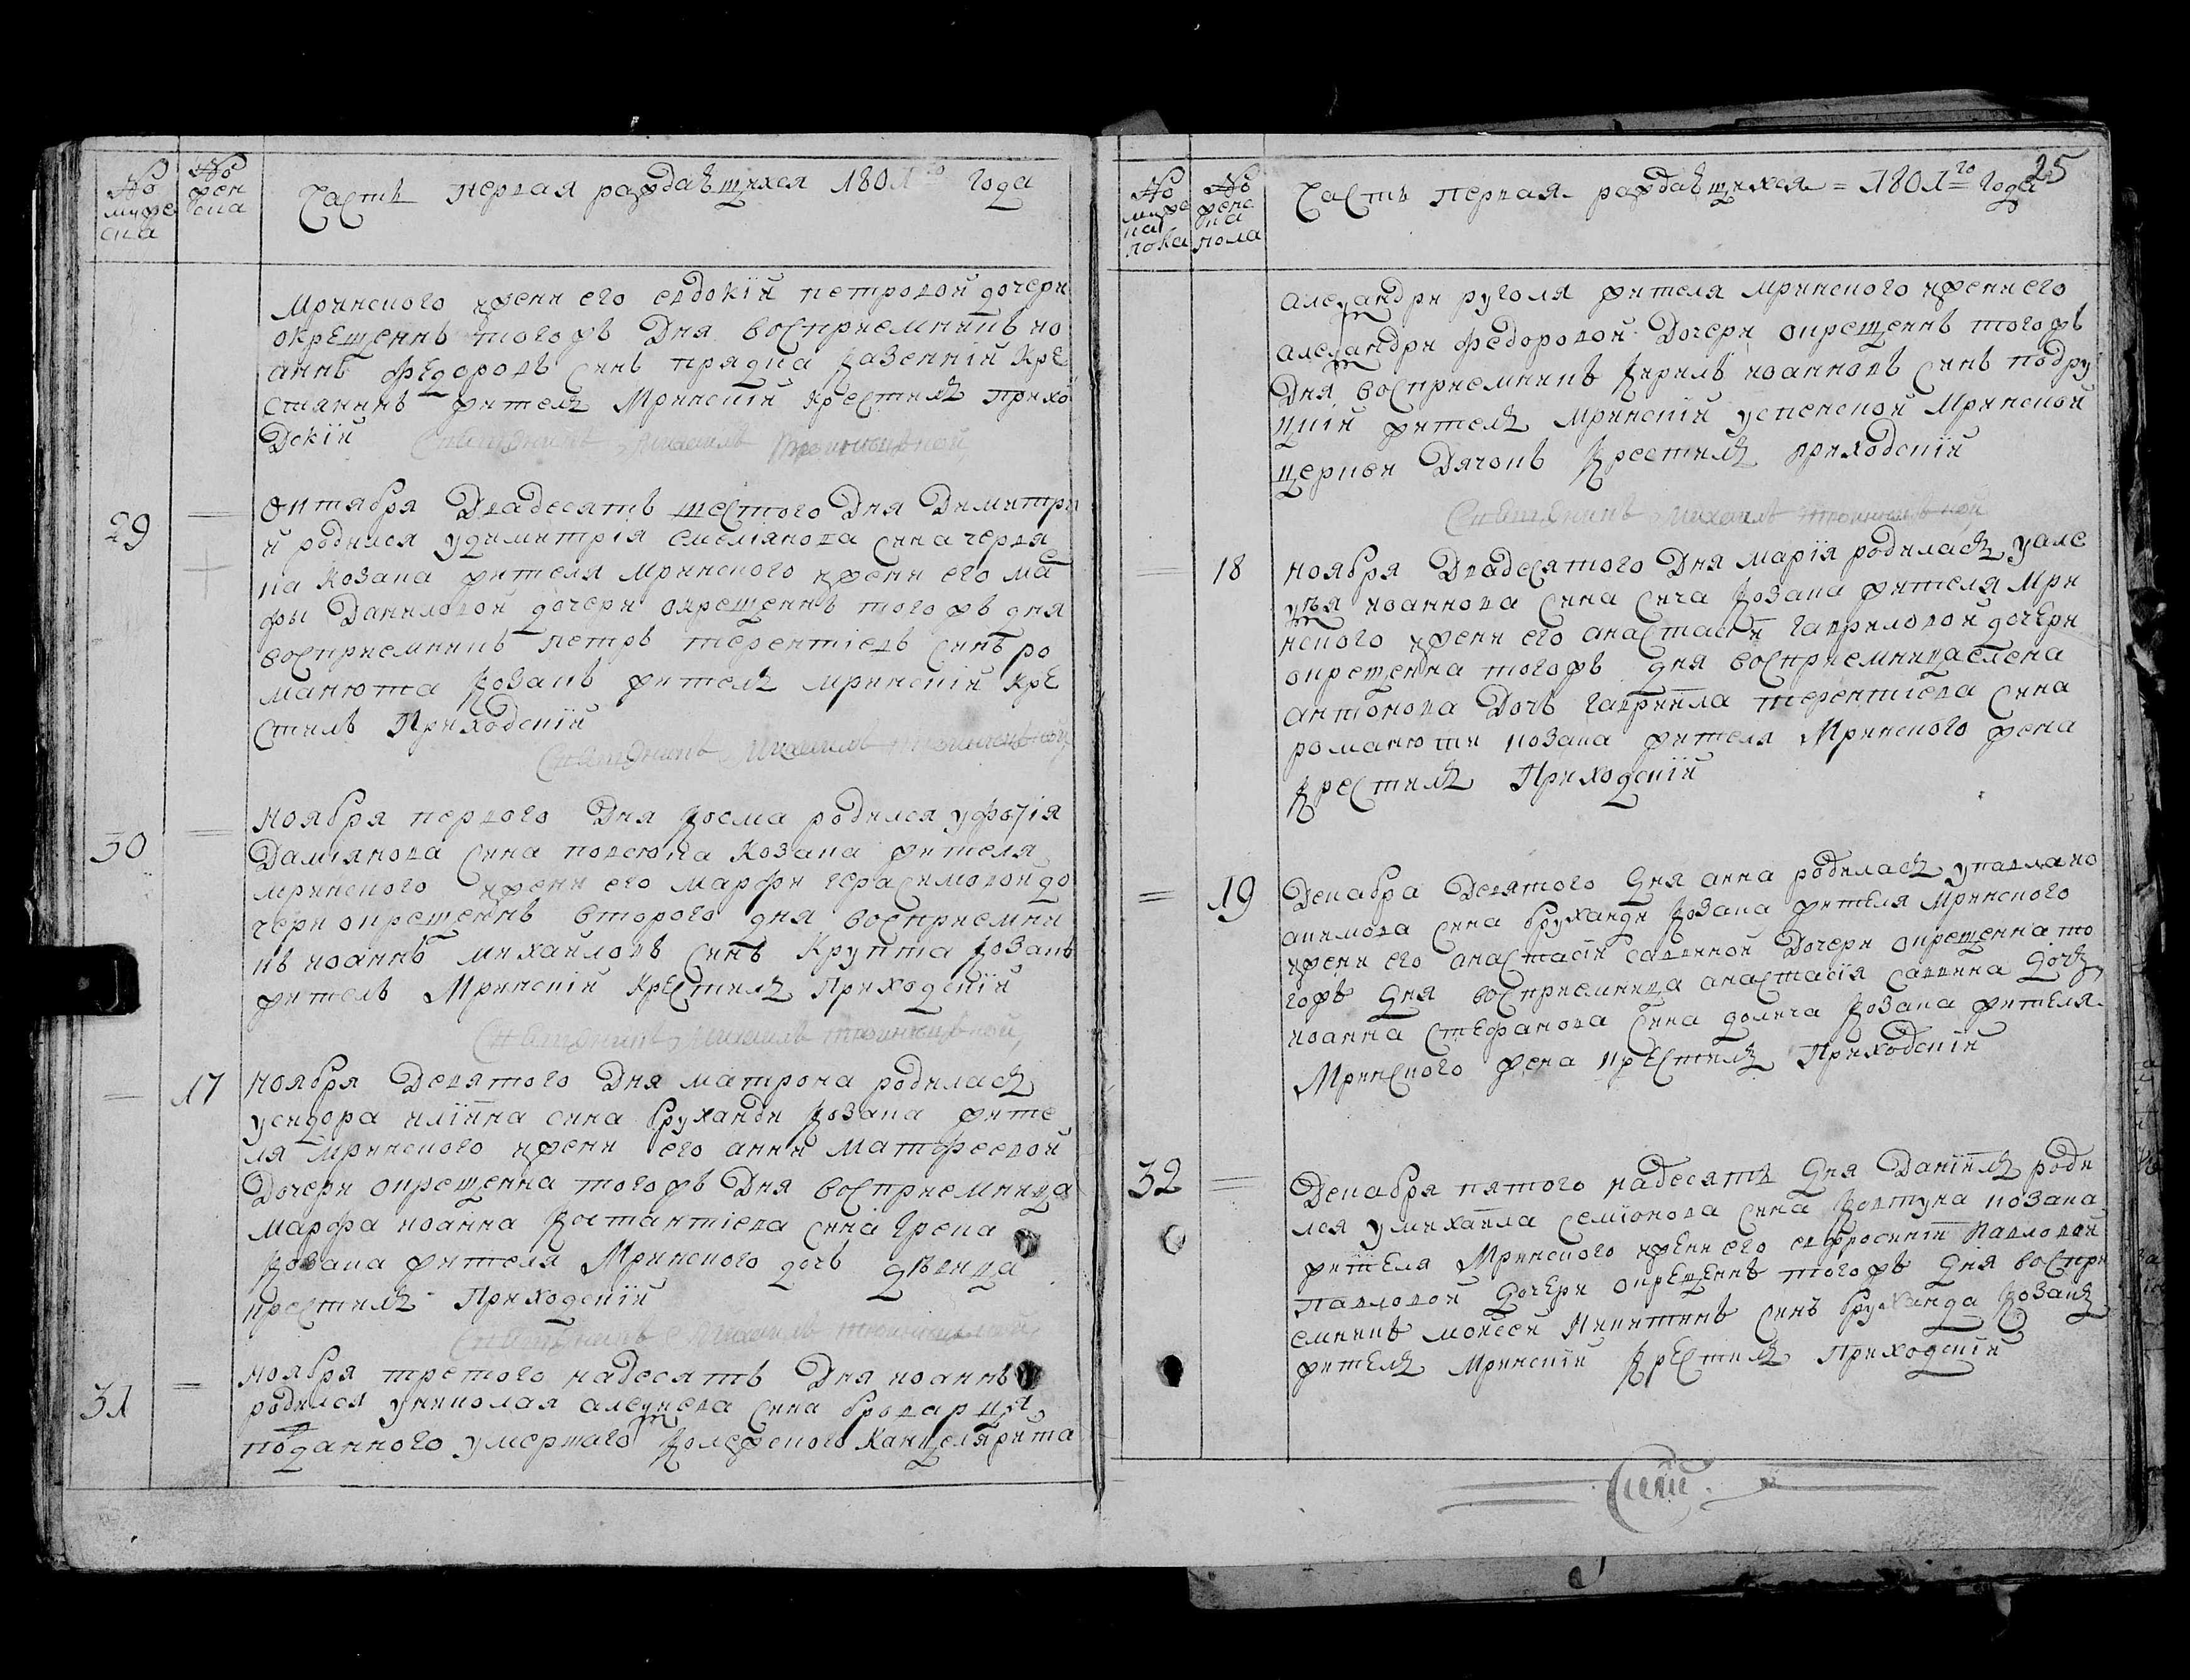 № муже ска
№ жен ска
Часть первая раждаещихся 1801го года
Мринского ижени его евдокїи петровой дочери
окрещеннъ тогожъ Дня восприемникъ ио
аннъ Федоровъ синъ прядка казенній кре
стянинъ жителъ Мринскій крестилъ прихо
Дскїй
29
Октября Двадесять шестого Дня Димитри
й родился удимитрія емеліянова сина червя
ка козака жителя Мринского ижени его ма
фы Даниловой дочери окрещеннъ тогожъ дня
восприемникъ петръ терентіевъ синъ ро
манюта козакъ жителъ мринскій кре
стилъ Приходскїй
30
Ноября первого Дня косма родился уфотія
Даміянова сина повсюка козака жителя
мринского ижени его марфи герасимовой до
чери окрещеннъ второго дня восприемни
къ иоаннъ михайловъ синъ Крупта козакъ
житель Мринскій крестилъ Приходскїй
17
Ноября Девятого Дня матрона родиласъ
усидора иліина сина Бруханди козака жите
ля мринского ижени его анни Матфеевой
Дочери окрещенна тогожъ Дня восприемница
марфа иоанна костантіева сина Грека
козака жителя Мринского дочъ дѣвица
крестилъ Приходскїй
31
Ноября третого надесять Дня иоаннъ
родился униколая алексиева сина броварця
подданного умершаго колежского канцелярита
25
№ муже ска пола
№ женс ка пола
Часть первая раждаещихся = 1801го года
александри руголя жителя мринского ижени его
александри федоровой Дочери окрещеннъ тогожъ
Дня восприемникъ кирилъ иоанновъ синъ подру
цкій жителъ мринскій успенской Мринской
церкви Дячокъ крестилъ приходскїй
18
Ноября Двадесятого Дня марїя родиласъ уале
ксѣя иоаннова сина сича козака жителя Мри
нского ижени его анастасїи гавриловой дочери
окрещенна тогожъ дня восприемница елена
антонова Дочъ гавриила терентіева сина
романюти козака жителя Мринского жена
крестилъ Приходскїй
19
Декабра Девятого Дня анна родиласъ упавла ио
акимова сина бруханди козака жителя Мринского
ижени его анастасїи саввиной Дочери окрещенна то
гожъ Дня восприемница анастасїя саввина Дочъ
иоанна Стефанова сина долича козака жителя
Мринского жена крестилъ Приходскїй
32
Декабря пятого надесятъ Дня Данїилъ роди
лся умихаила семіонова сина ковтуна козака
жителя Мринского ижени его евфросинїи Павловой
Павловой Дочери окрещеннъ тогожъ Дня воспри
емникъ мойсей Никитинъ синъ бруханда козакъ
жителъ Мринскїй крестилъ Приходскїй